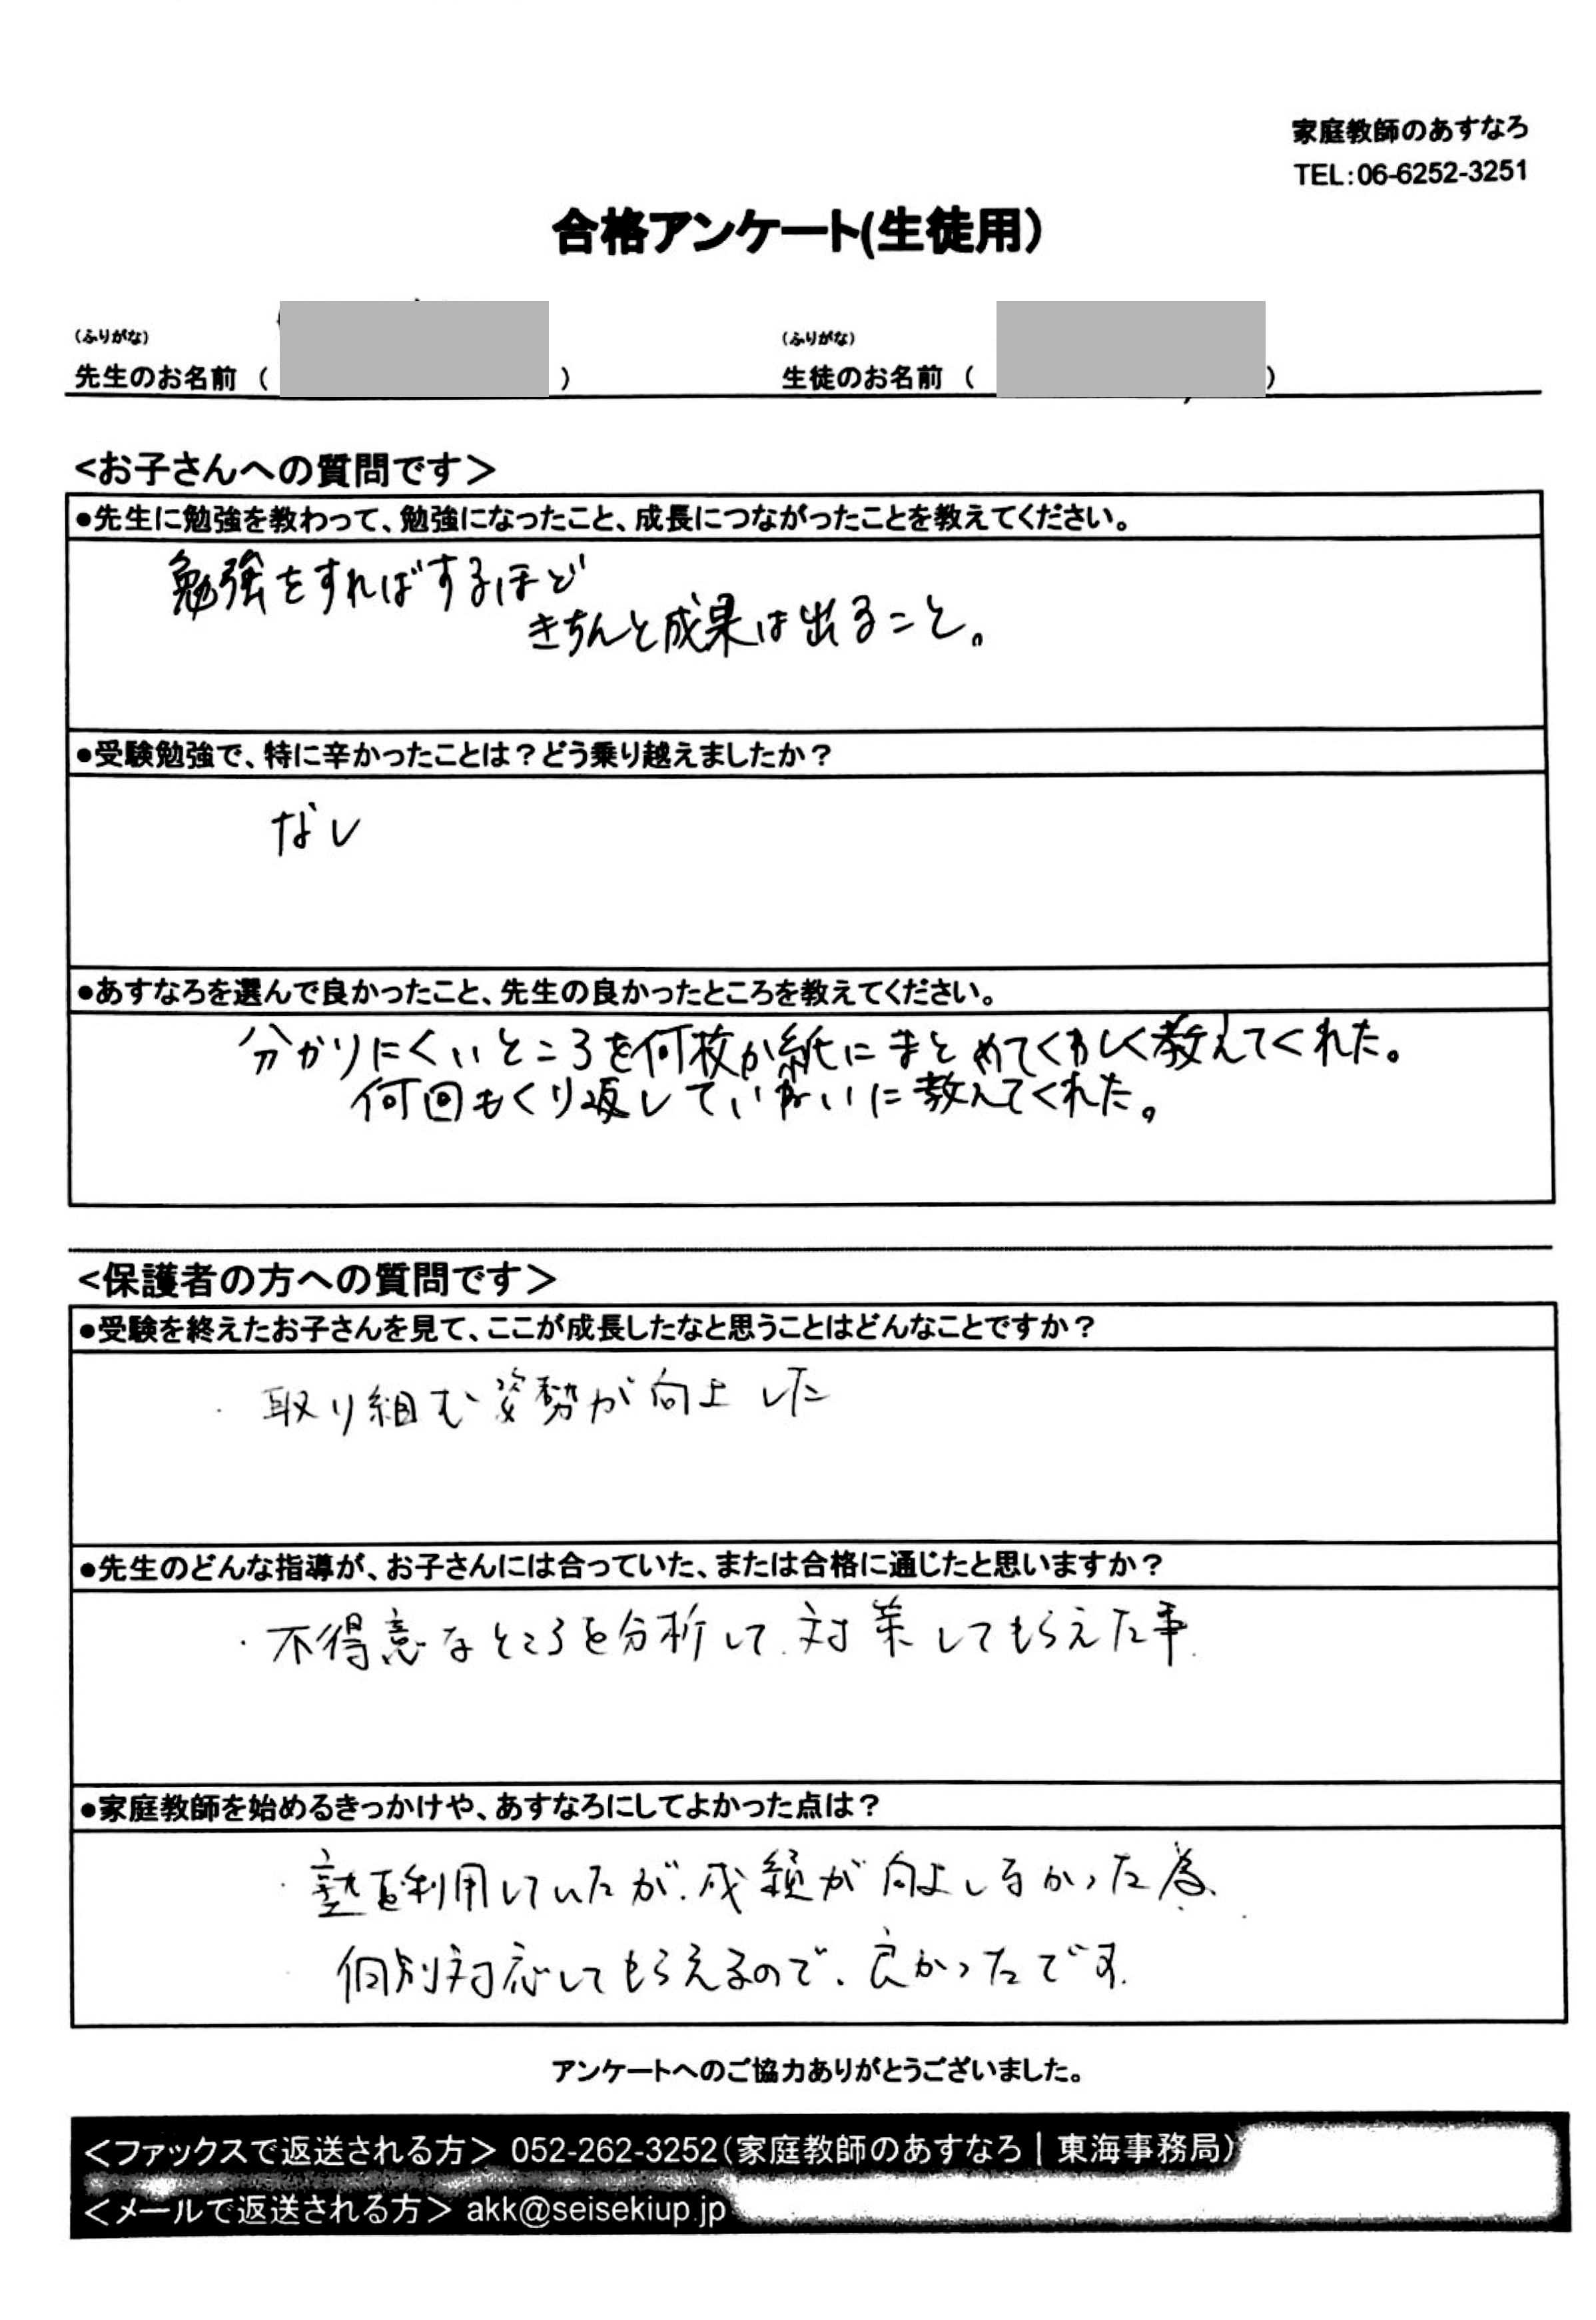 家庭教師のあすなろ
TEL:06-6252-3251
合格アンケート(生徒用)
(ふりがな)
先生のお名前 ( )
(ふりがな)
生徒のお名前 ( )
<お子さんへの質問です>
●先生に勉強を教わって、勉強になったこと、成長につながったことを教えてください。
勉強をすればするほど
きちんと成果は出ること。
●受験勉強で、特に辛かったことは?どう乗り越えましたか?
なし
●あすなろを選んで良かったこと、先生の良かったところを教えてください。
分かりにくいところを何枚か紙にまとめてくわしく教えてくれた。
何回もくり返していねいに教えてくれた。
<保護者の方への質問です>
●受験を終えたお子さんを見て、ここが成長したなと思うことはどんなことですか?
・取り組む姿勢が向上した
●先生のどんな指導が、お子さんには合っていた、または合格に通じたと思いますか?
・不得意なところを分析して、対策してもらえた事.
●家庭教師を始めるきっかけや、あすなろにしてよかった点は?
・塾を利用していたが、成績が向上しなかった為、
個別対応してもらえるので、良かったです.
アンケートへのご協力ありがとうございました。
<ファックスで返送される方> 052-262-3252(家庭教師のあすなろ|東海事務局)
<メールで返送される方> akk@seisekiup.jp